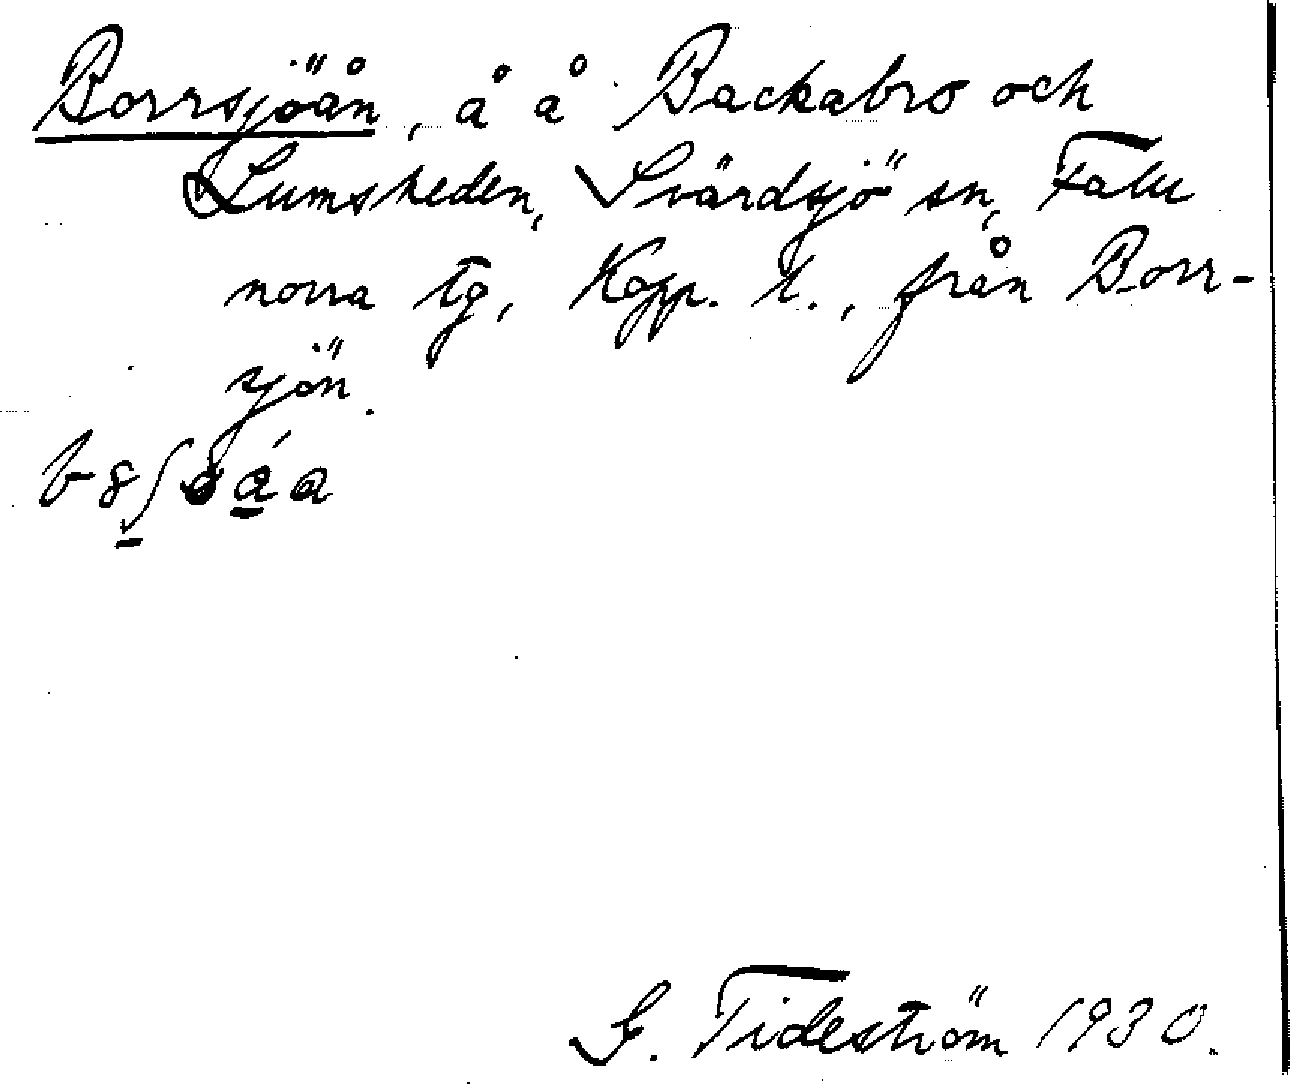 Borrsjöån, å å Backabro och
Lumsheden, Svärdsjö sn, Falu
norra tg, Kopp. l., från Borr-
sjön.
G. Tideström 1930.